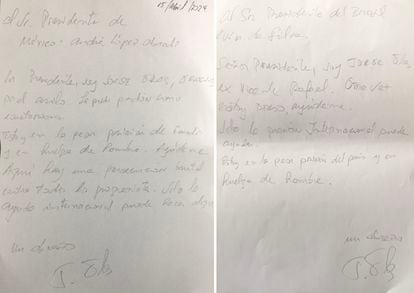 15/Abril/2024
Al Sr. Presidente de
México. Andrés López Obrador
Sr. Presidente, soy Jorge Glas,
por el asilo. Le pido perdón
Estoy en la peor prisión de
y en huelga de hambre. Ayúdeme
Aquí hay una persecución brutal
contra todos los progresistas. Solo la
ayuda internacional puede hacer algo
un abrazo
J. Glas
Al Sr. Presidente del Brasil
Lula da Silva.
Señor Presidente, soy Jorge Glas
ex Vice de Rafael. Otra vez
estoy preso, ayúdeme.
Solo la presión Internacional puede
ayudar.
Estoy en la peor prisión del país y en
huelga de hambre.
un abrazo
J. Glas